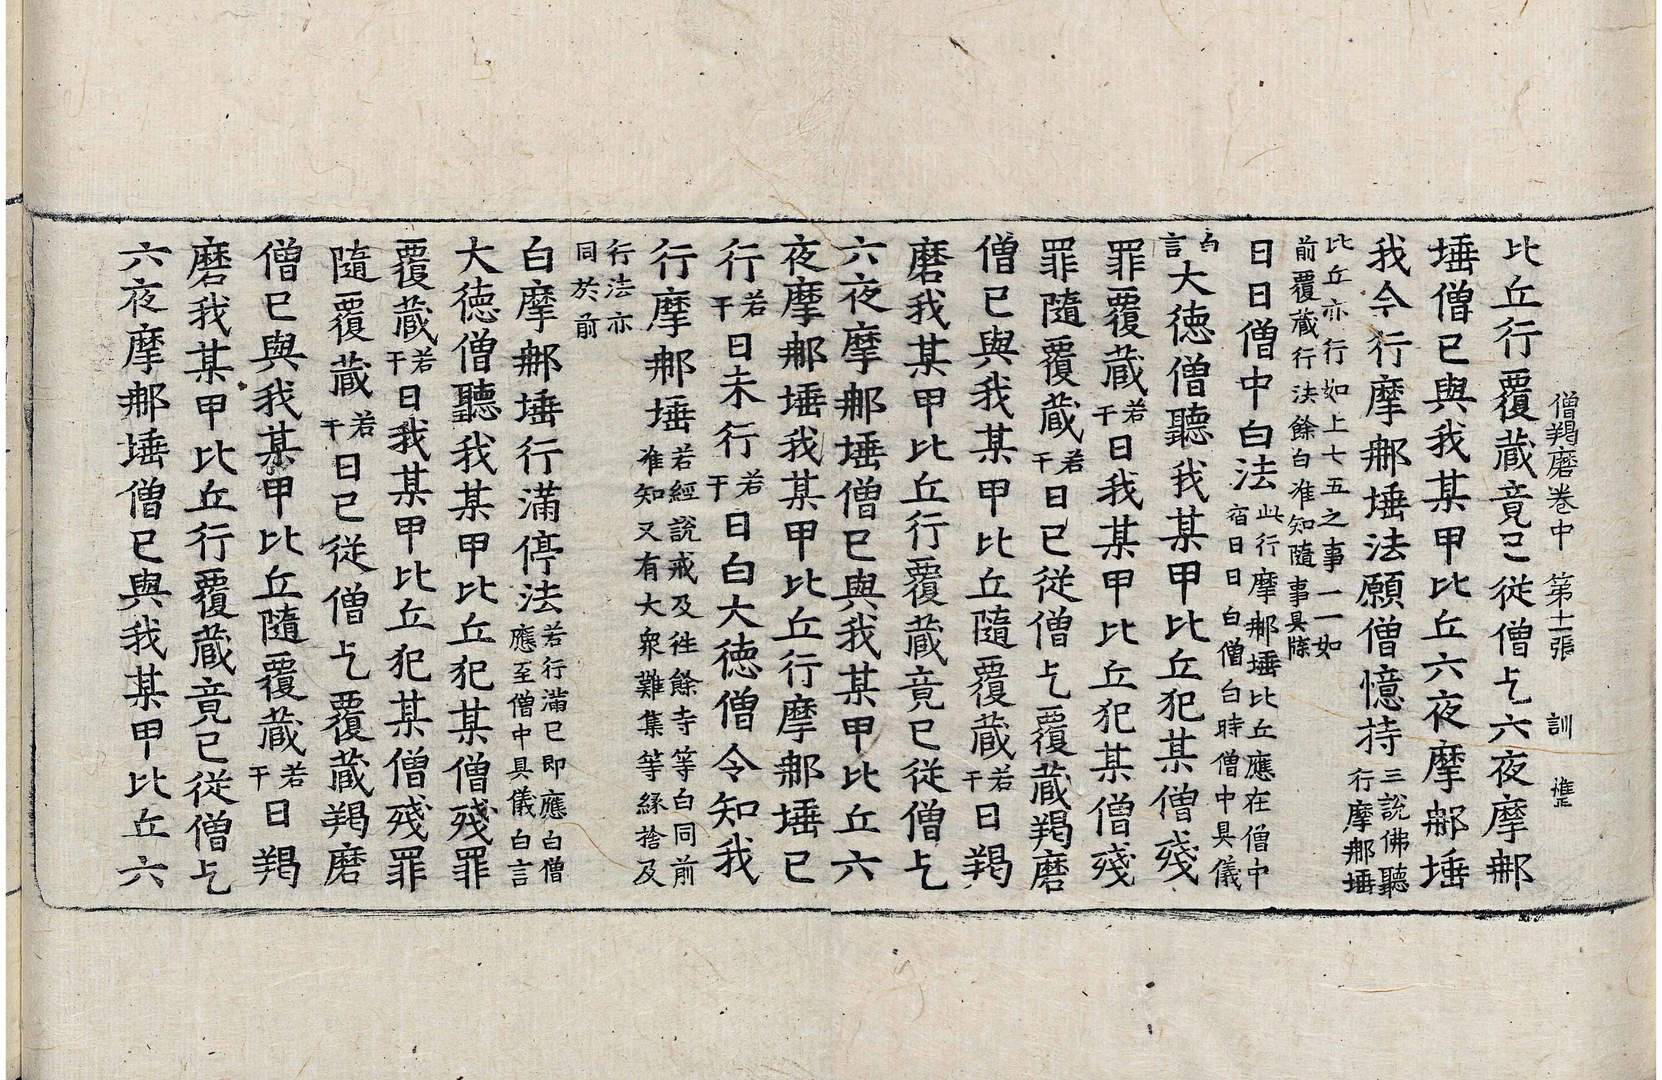 僧羯磨卷中 第十一張 訓
比丘行覆藏竟已從僧乞六夜摩那
埵僧已與我某甲比丘六夜摩那埵
我今行摩那埵法願僧憶持三說佛聽行摩那埵
比丘亦行如上七五之事一一如前覆藏行法餘白准知隨事具牒
日日僧中白法此行摩那埵比丘應在僧中宿日日白僧白時僧中具儀
白言大德僧聽我某甲比丘犯某僧殘
罪覆藏若干日我某甲比丘犯某僧殘
罪隨覆藏若干日已從僧乞覆藏羯磨
僧已與我某甲比丘隨覆藏若干日羯
磨我某甲比丘行覆藏竟已從僧乞
六夜摩那埵僧已與我某甲比丘六
夜摩那埵我某甲比丘行摩那埵已
行若干日未行若干日白大德僧令知我
行摩那埵若經說戒及往餘寺等白同前准知又有大眾難集等緣捨及
行法亦同於前
白摩那埵行滿停法若行滿已即應白僧應至僧中具儀白言
大德僧聽我某甲比丘犯某僧殘罪
覆藏若干日我某甲比丘犯某僧殘罪
隨覆藏若干日已從僧乞覆藏羯磨
僧已與我某甲比丘隨覆藏若干日羯
磨我某甲比丘行覆藏竟已從僧乞
六夜摩那埵僧已與我某甲比丘六